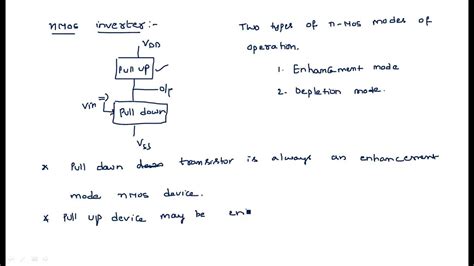 nMos inverter:-
VDD
Pull up
o/p
Vin
Pull down
VSS
Two types of n-Mos modes of
operation.
1. Enhancement mode
2. Depletion mode.
* Pull down transistor is always an enhancement
mode nMos device.
* Pull up device may be en